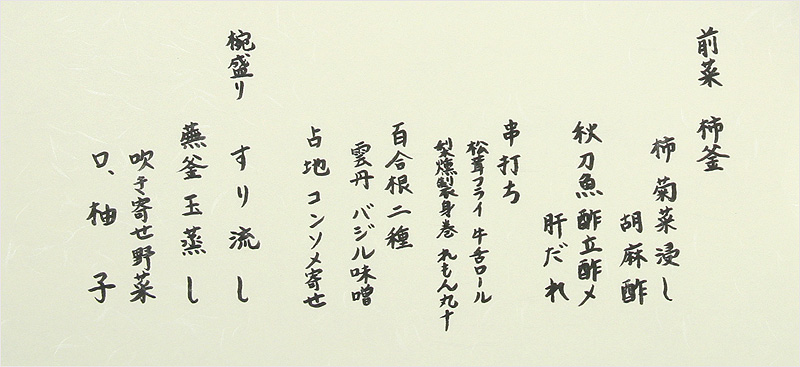 前菜 柿釜
柿 菊菜浸し
胡麻酢
秋刀魚 酢立酢〆
肝だれ
串打ち
松茸フライ 牛舌ロール
梨燻製身巻 れもん丸十
百合根二種
雲丹 バジル味噌
占地 コンソメ寄せ
椀盛り すり流し
蕪釜玉蒸し
吹き寄せ野菜
口、柚子